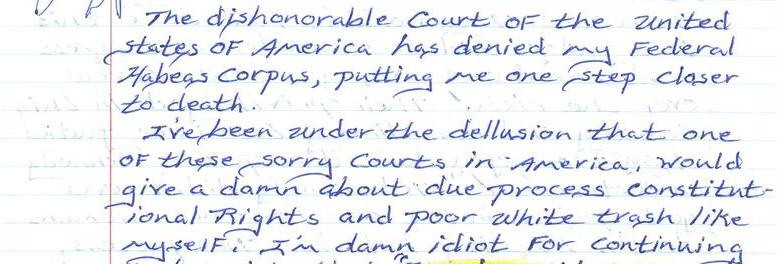 The dishonorable Court OF the united
states OF America has denied my Federal
Habeas Corpus, putting me one step closer
to death.
I've been under the dellusion that one
OF these sorry Courts in America, would
give a damn about due process constitut-
ional Rights and poor white trash like
myself. I'm damn idiot For continuing